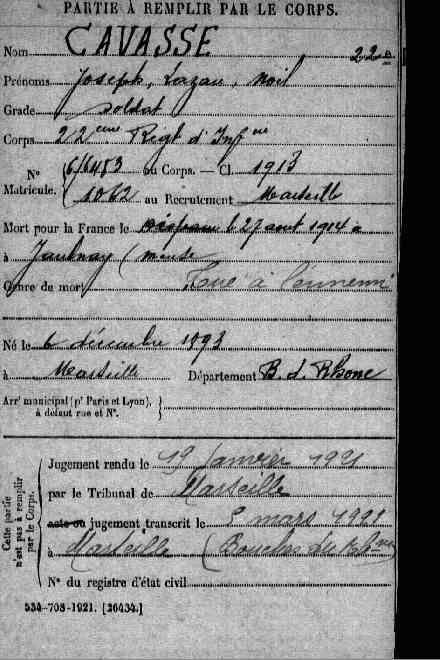 PARTIE À REMPLIR PAR LE CORPS.
Nom CAVASSE
Prénoms Joseph, Lazare, Noël
Grade soldat
Corps 22eme Regt d'Infie
N° Matricule. 6/6483 au Corps. — Cl. 1913
1062 au Recrutement Marseille
Mort pour la France le disparu le 27 aout 1914 à
à Jaulnay (meuse
Genre de mort Tué à l'ennemi
Né le 6 décembre 1893
à Marseille Département B. d. Rhone
Arrt municipal (pr Paris et Lyon),
à défaut rue et N°.
Cette partie n'est pas à remplir par le Corps.
Jugement rendu le 19 Janvier 1921
par le Tribunal de Marseille
acte ou jugement transcrit le mars 1921
à Marseille (Bouches du Rhône
N° du registre d'état civil
534-708-1921. [26434.]